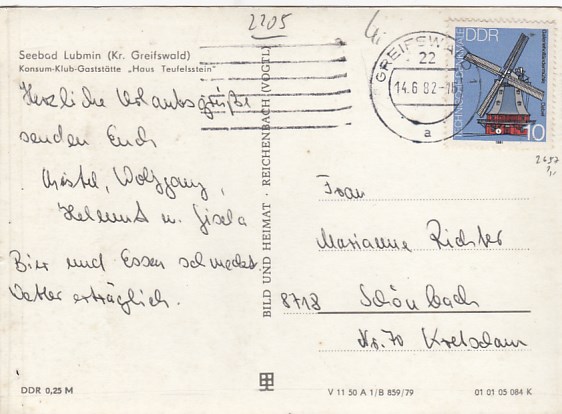 2205
Seebad Lubmin (Kr. Greifswald)
Konsum-Klub-Gaststätte „Haus Teufelsstein"
Herzliche Urlaubsgrüße
senden Euch
Christel, Wolfgang,
Helmut u. Gisela
Bier und Essen schmeckt
Wetter erträglich.
BILD UND HEIMAT · REICHENBACH (VOGTL)
GREIFSWALD
22
14.6.82-16
a
DDR
10
2657
Frau
Marianne Richter
8718 Schönbach
Nr. 70 Kretscham
DDR 0,25 M
V 11 50 A 1/B 859/79
01 01 05 084 K